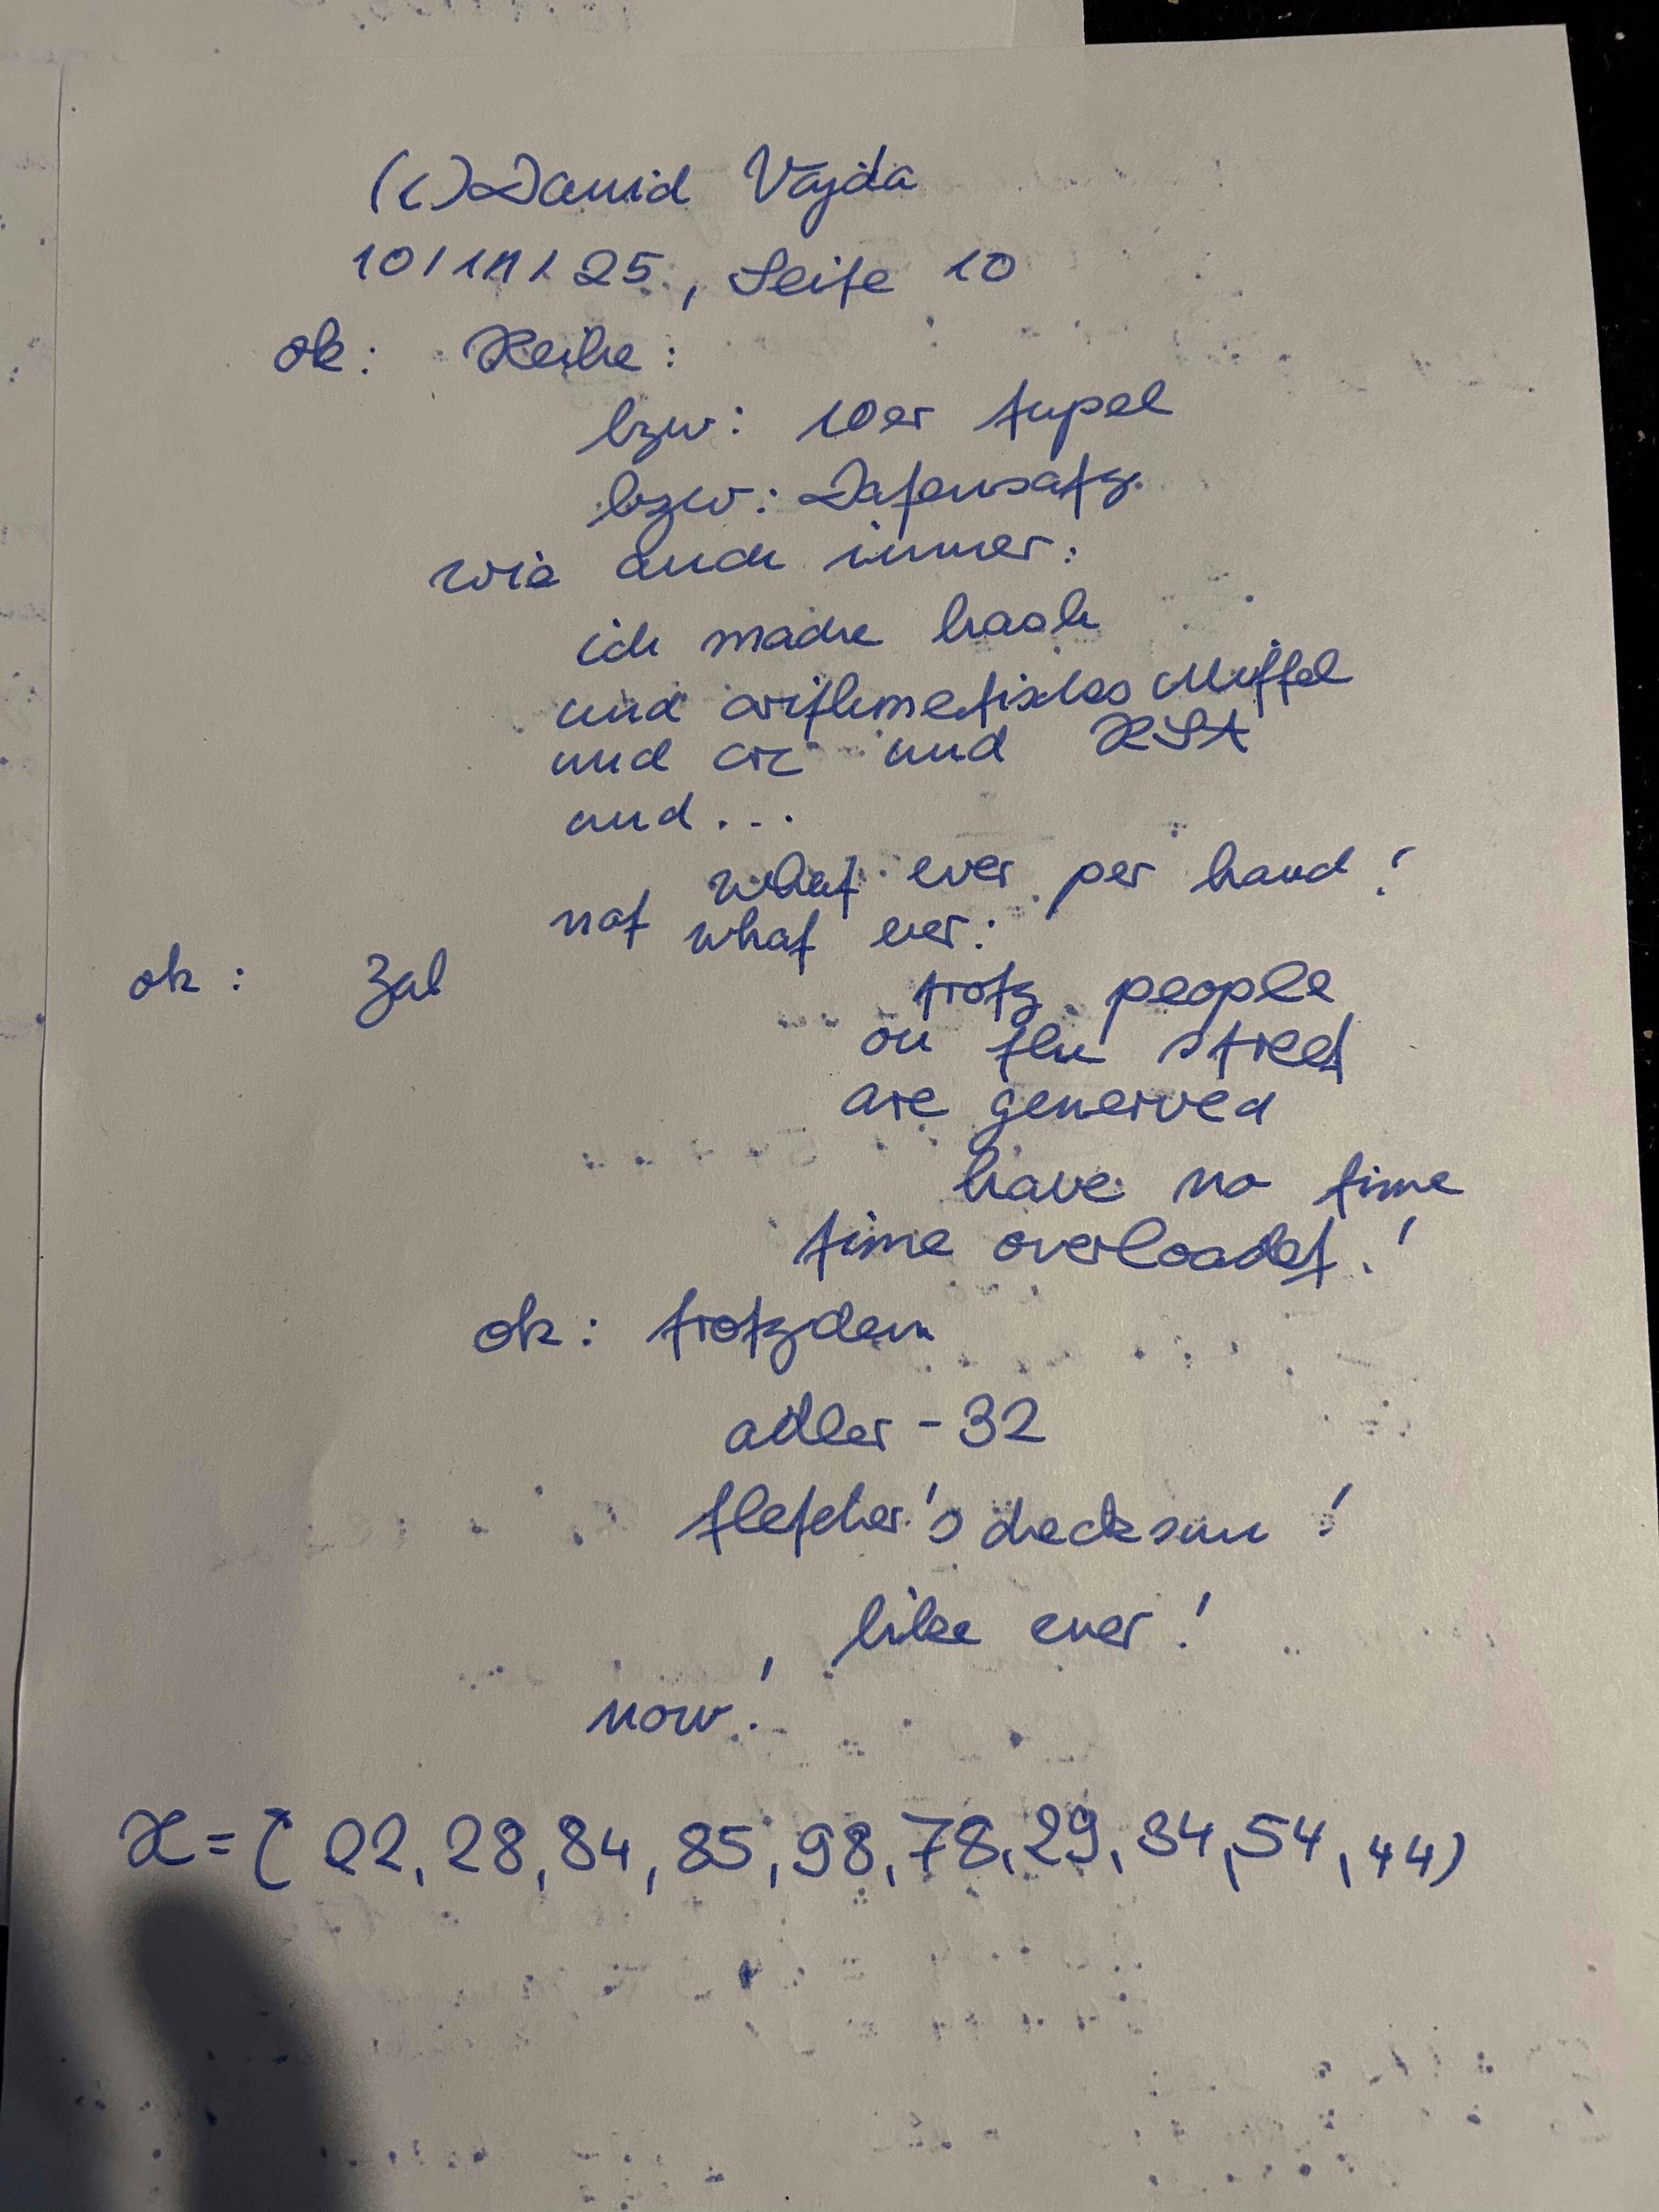 (c) David Vajda
10/11/25, Seite 10
ok: Reihe:
bzw: 10er tupel
bzw: Datensatz
wie auch immer:
ich mache hash
und arithmetisches Mittel
und crc und RSA
and...
what ever per hand!
not what ever:
ok: Zal
trotz people
on the street
are generved
have no time
time overloadet!
ok: trotzdem
adler-32
fletcher's checksum!
like ever!
now!
X=( 22, 28, 84, 85, 98, 78, 29, 34, 54, 44)